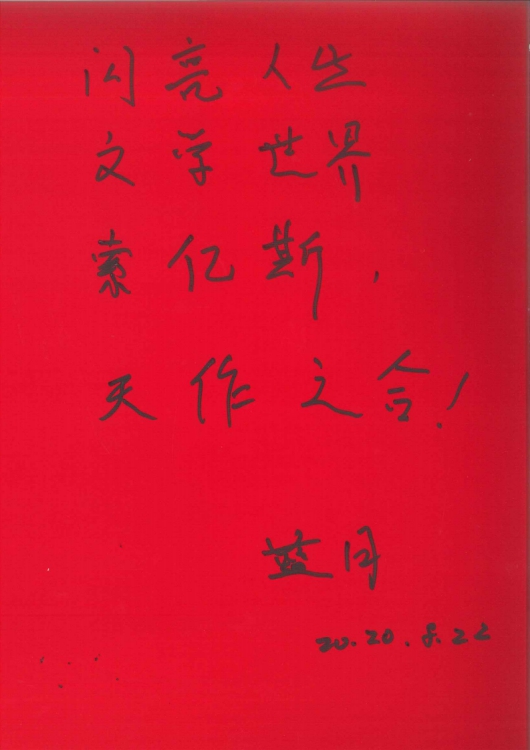 闪亮人生
文学世界
索亿斯，
天作之合！
蓝月
2020.8.22